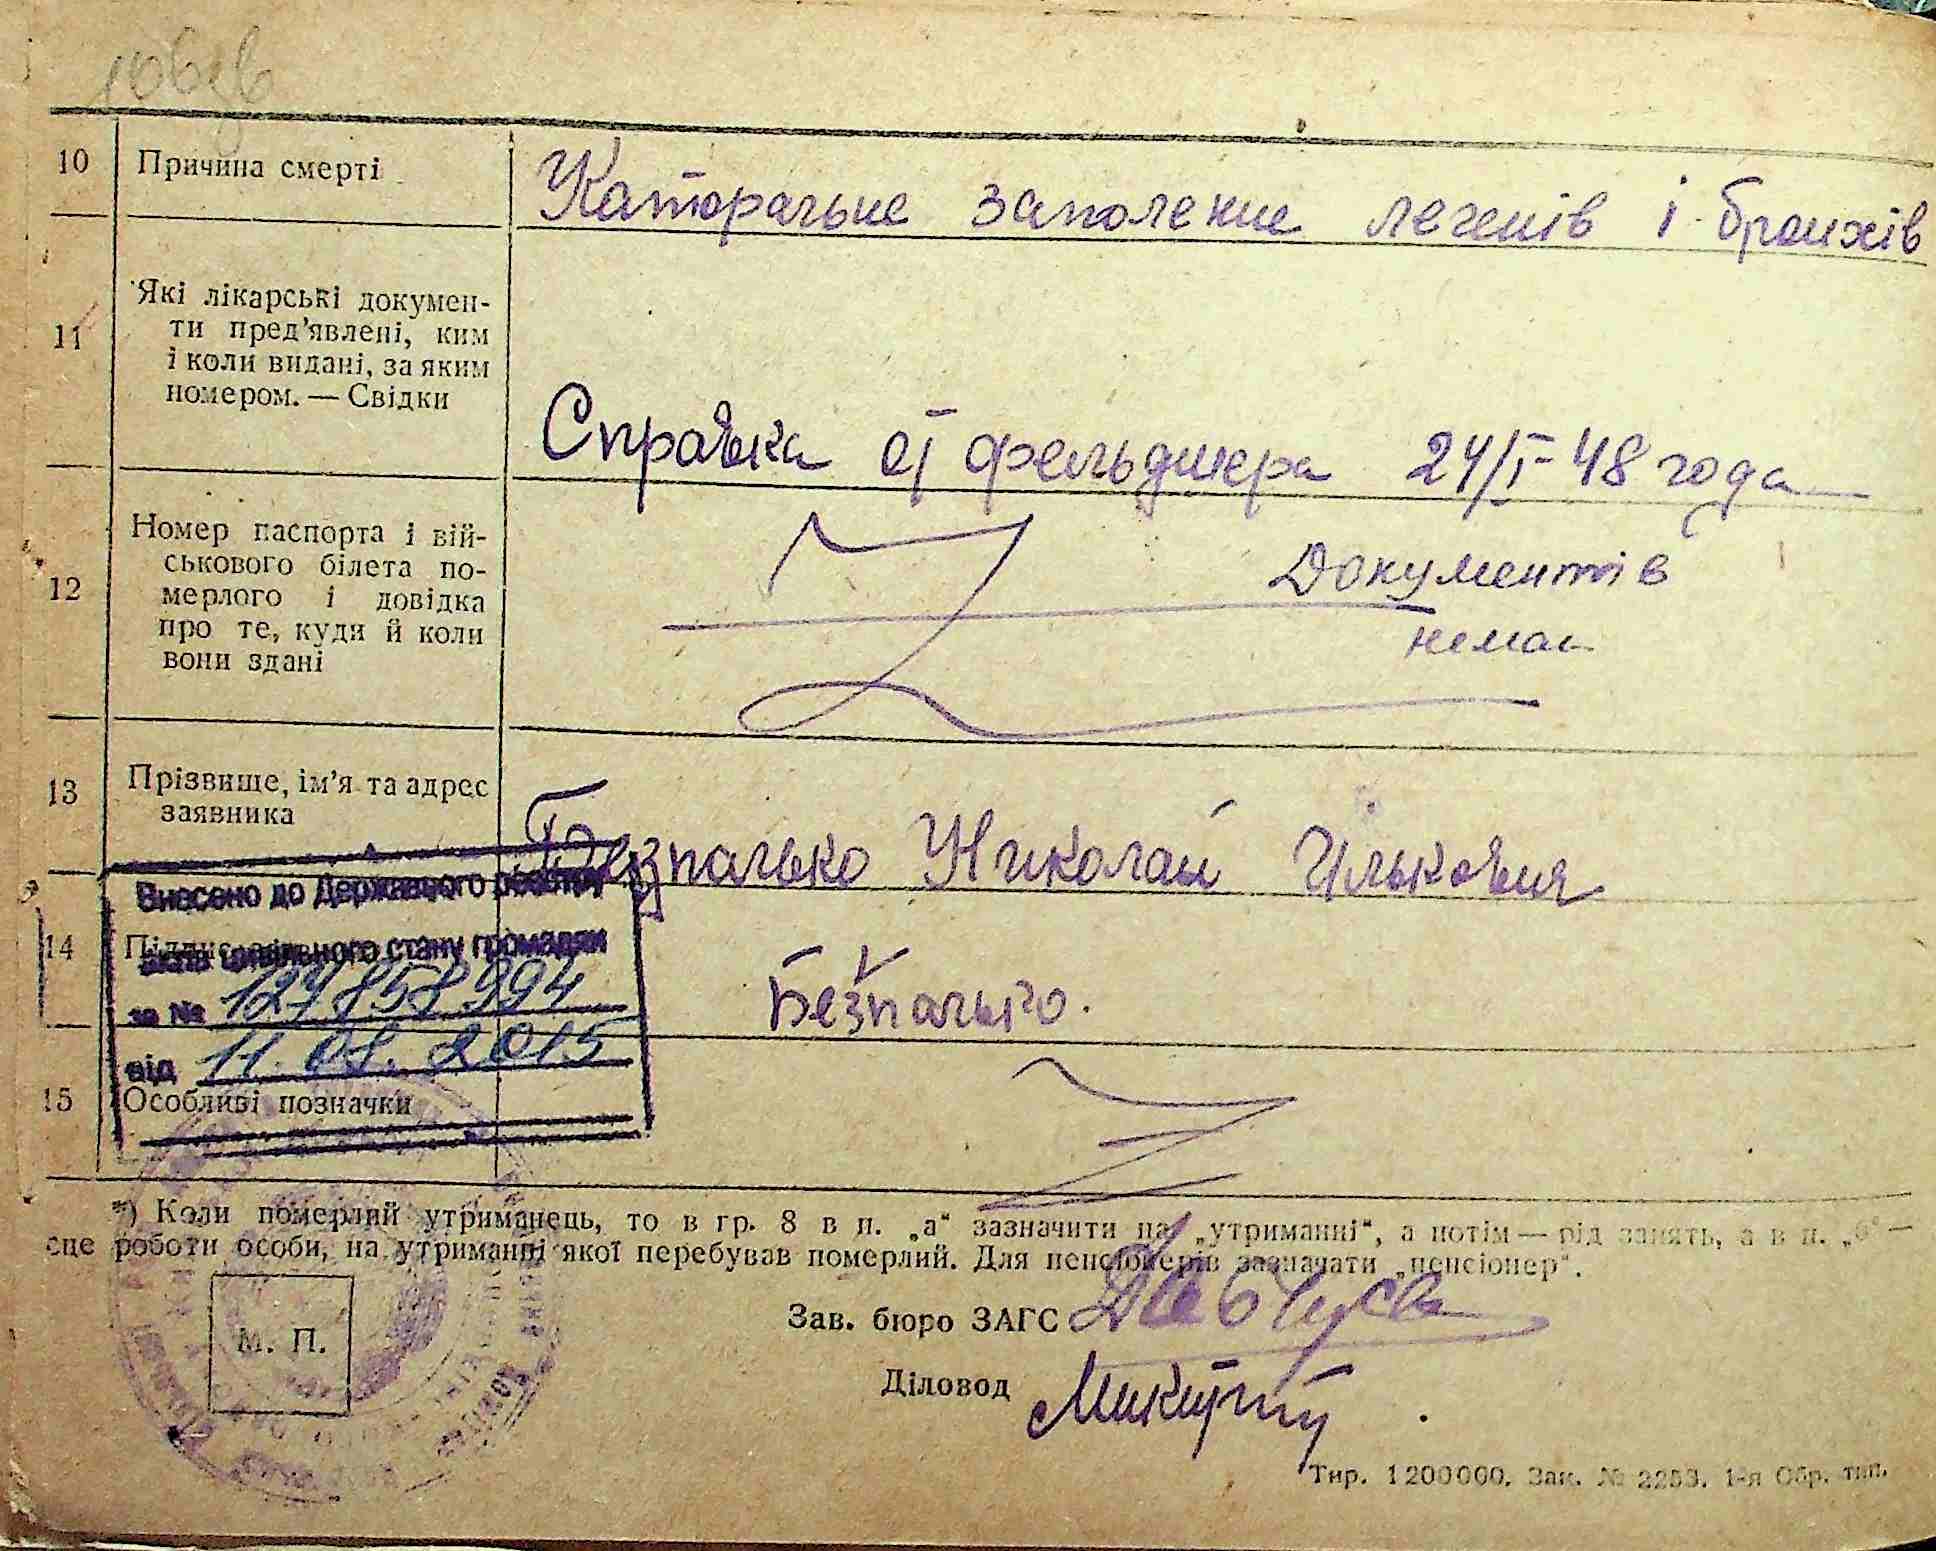 10 Причина смерті
Каторальне заполение легенів і бронхів
11 Які лікарські докумен-
ти пред'явлені, ким
і коли видані, за яким
номером. — Свідки
Справка от фельдшера 24/I-48 года
12 Номер паспорта і вій-
ськового білета по-
мерлого і довідка
про те, куди й коли
вони здані
Документів
немає
13 Прізвище, ім'я та адрес
заявника
Безпалько Николай
14
Безпалько.
Внесено до Державного реєстру
актів цивільного стану громадян
за № 127858994
від 11.08.2015
15 Особливі позначки
*) Коли померлий утриманець, то в гр. 8 в п. „а“ зазначити на „утриманні“, а потім — рід занять, а в п. „б“ —
сце роботи особи, на утриманні якої перебував померлий. Для пенсіонерів зазначати „пенсіонер“.
М. П.
Зав. бюро ЗАГС
Діловод
Тир. 1200000. Зак. № 2253. 1-я Обр. тип.